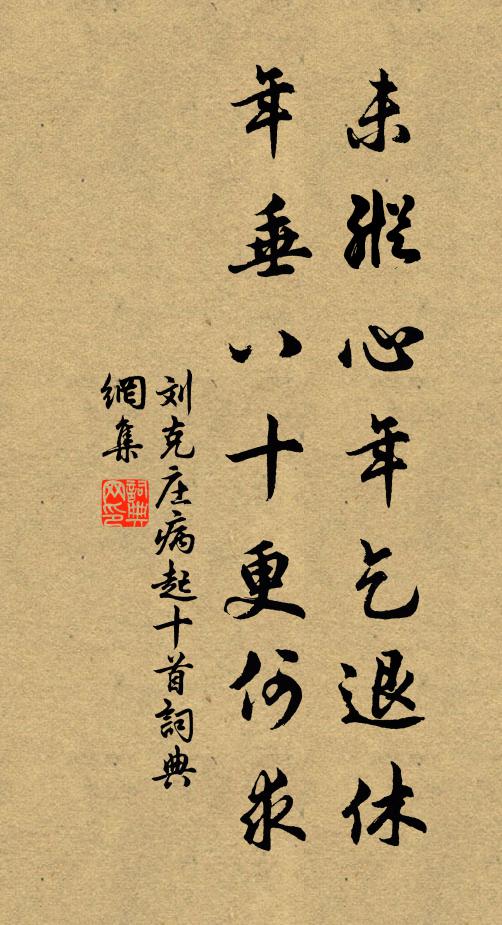 未縱心年乞退休
年垂八十更何求
刘克庄病起十首詞典
網集
詞典
网印